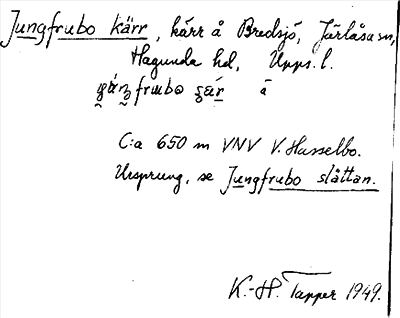 Jungfrubo kärr, kärr å Bredsjö, Järlåsa sn,
Hagunda hd, Upps. l.
frɯbo å
C:a 650 m VNV V. Hasselbo.
Ursprung, se Jungfrubo slåttan.
K.-H. Tapper 1949.